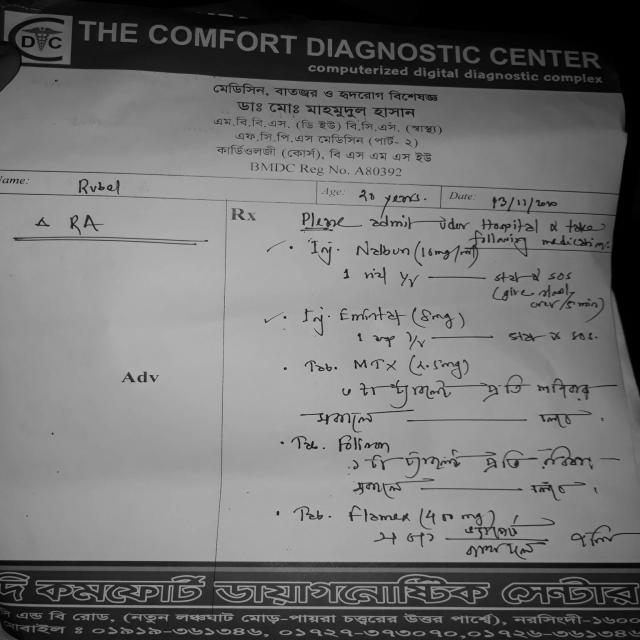 DC
THE COMFORT DIAGNOSTIC CENTER
computerized digital diagnostic complex
মেডিসিন, বাতজ্বর ও হৃদরোগ বিশেষজ্ঞ
ডাঃ মোঃ মাহমুদুল হাসান
এম.বি.বি.এস. (ডি ইউ) বি.সি.এস. (স্বাস্থ্য)
এফ.সি.পি.এস মেডিসিন (পার্ট- ২)
কার্ডিওলজী (কোর্স), বি এস এম এস ইউ
BMDC Reg No. A80392
Name: Rubel Age: 20 years. Date: 13/11/
Δ RA
Rx Please admit Hospital & take
following medication:
Inj. Nalbun (10mg/ml)
1 I/V SOS
(give slowly
over/5 min)
Inj. Emistat (8mg)
1 amp I/V SOS.
Adv
Tab. MTX (2.5mg)
৩ টা ট্যাবলেট প্রতি শনিবার
সকালে চলবে।
Tab. Folison
১ টা ট্যাবলেট প্রতি রবিবার
সকালে চলবে।
Tab. Flamex (400 mg)
দি কমফোর্ট ডায়াগনোষ্টিক সেন্টার
সি এন্ড বি রোড, (নতুন লঞ্চঘাট মোড়-পায়রা চত্ত্বরের উত্তর পার্শ্বে), নরসিংদী-১৬০০
মোবাইল : ০১৯১৯-৩৬১৩৪৬, ০১৭২৭-৩৭৩০৭০,